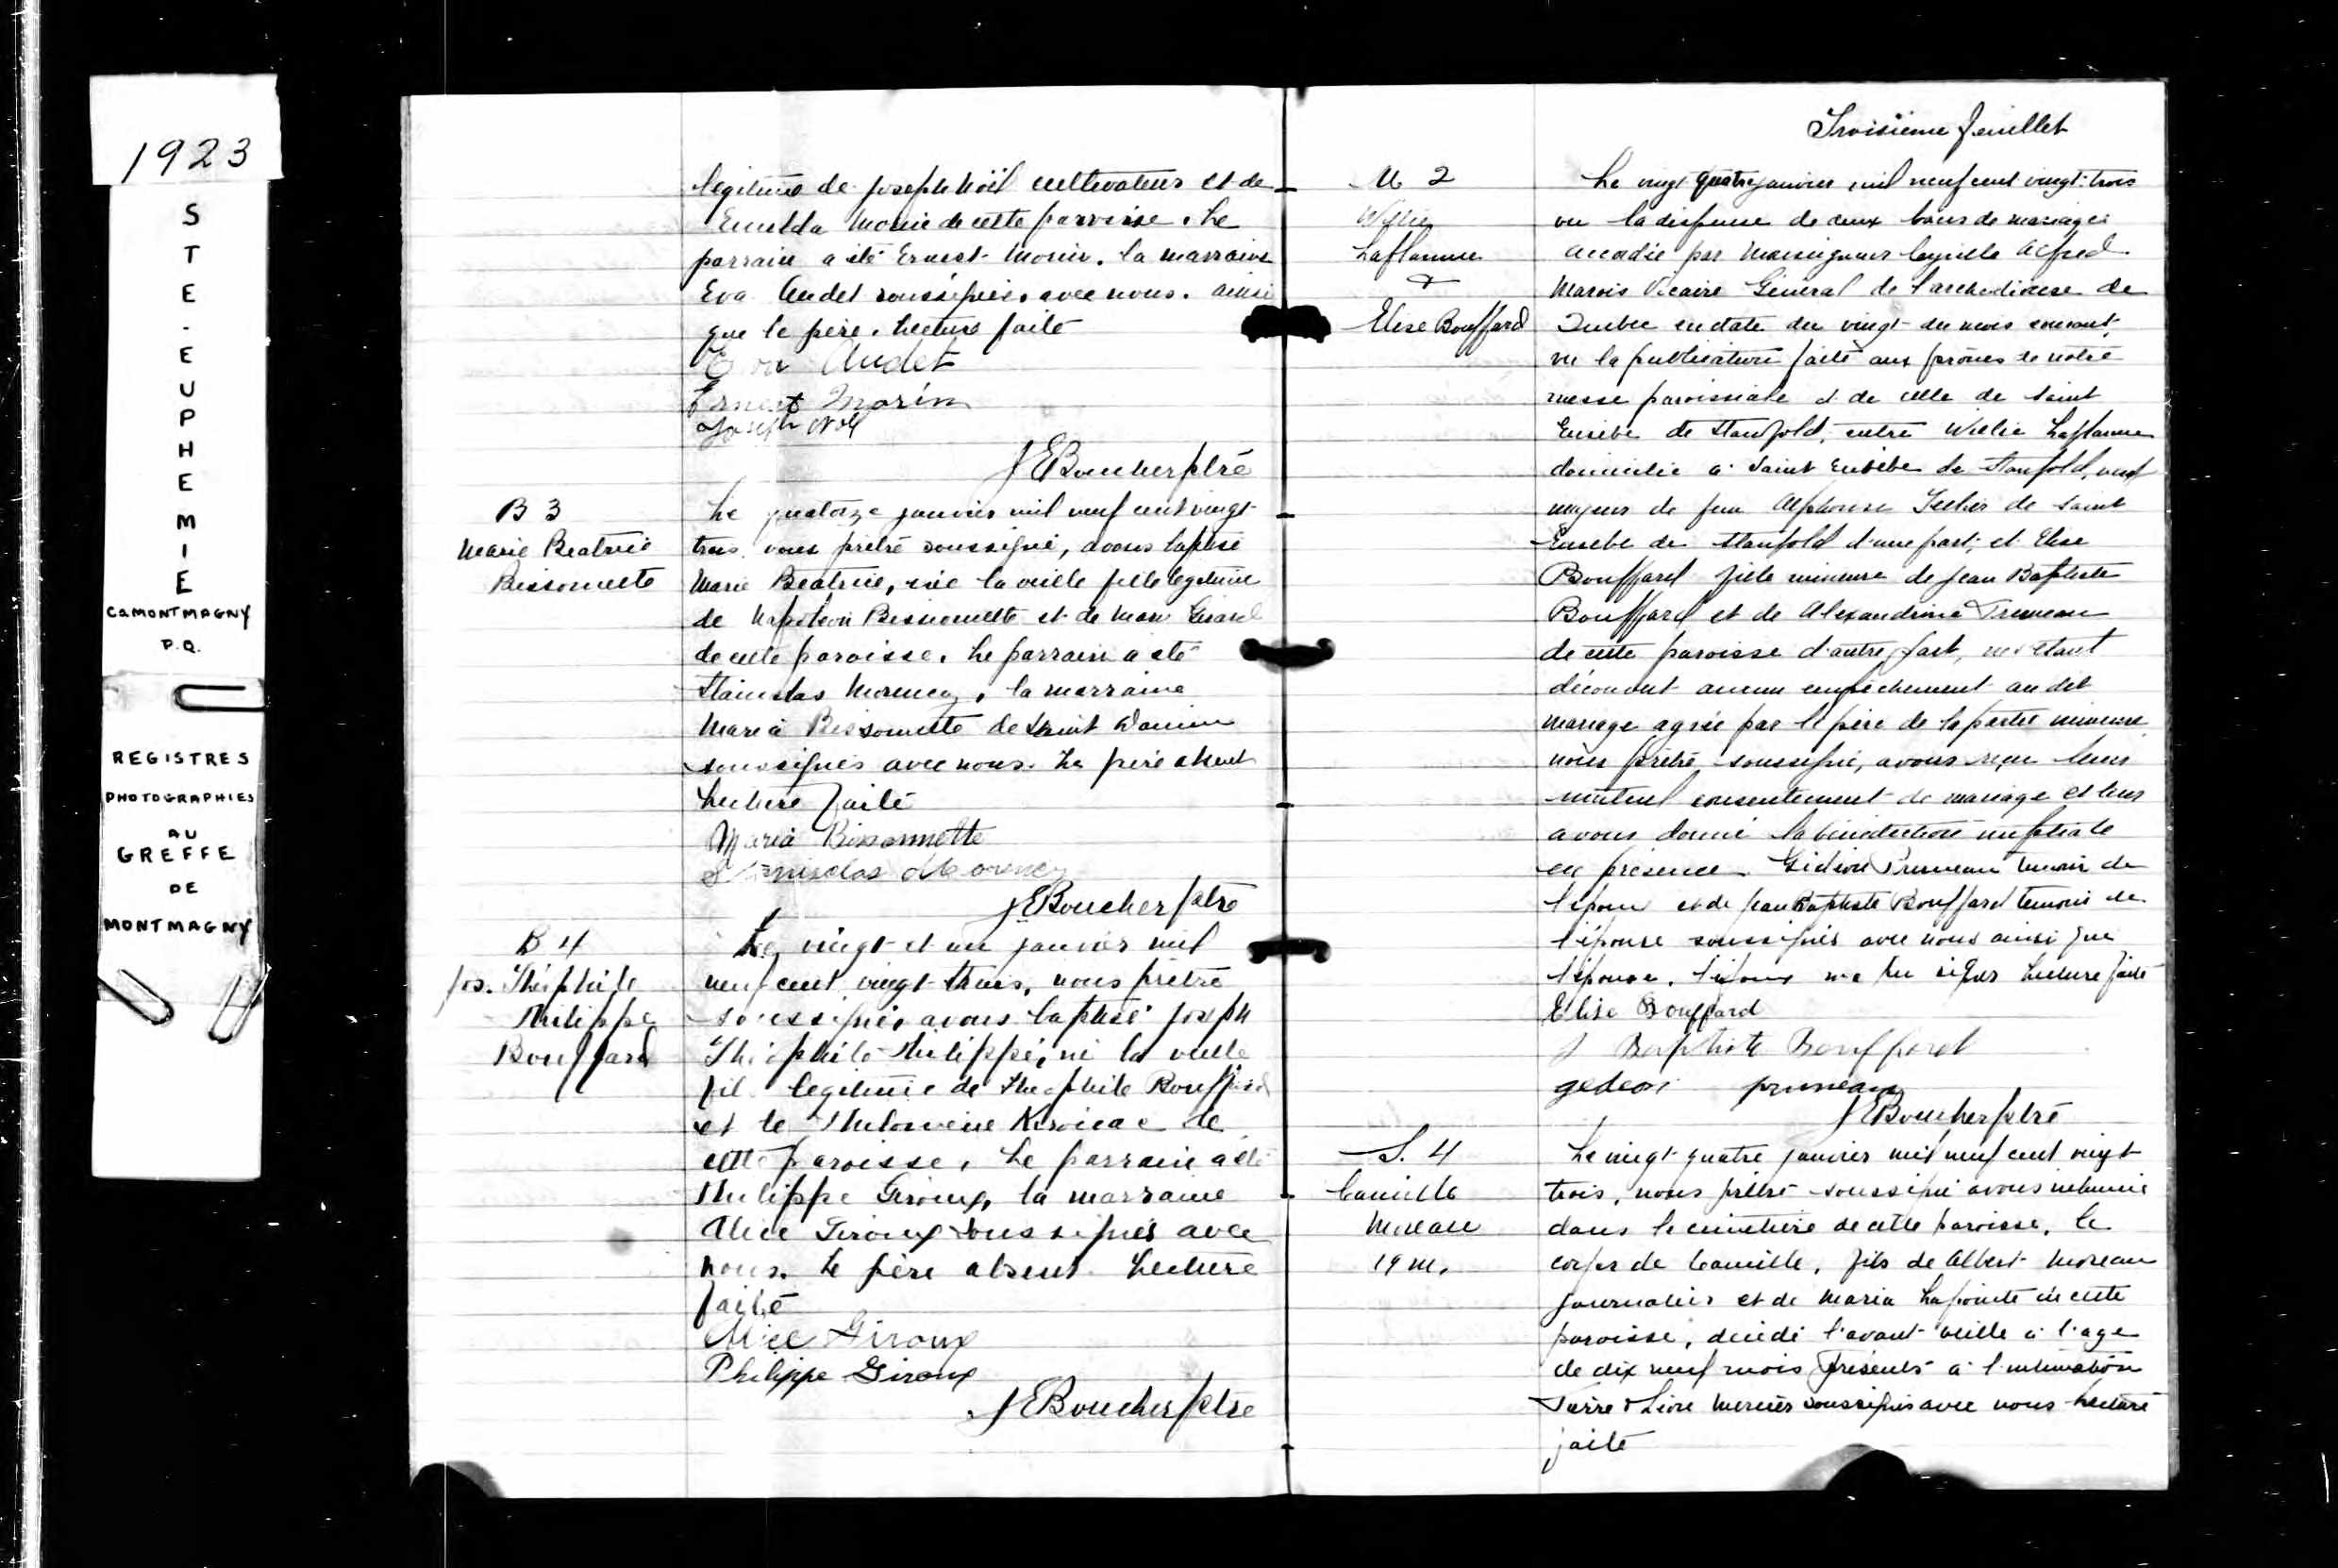 1923
STE-EUPHEMIE
Co MONTMAGNY
P.Q.
REGISTRES
PHOTOGRAPHIES
AU
GREFFE
DE
MONTMAGNY
légitime de Joseph Noël cultivateur et de
Morin de cette paroisse. Le
parrain a été Ernest Morin. la marraine
Eva Audet soussignés avec nous. ainsi
que le père. Lecture faite
Eva Audet
Ernest Morin
Joseph Noel
J E Boucher ptre
B 3
Marie Beatrice
Bissonnette
Le quatorze janvier mil neuf cent vingt
trois nous prêtre soussigné, avons baptisé
Marie Beatrice, née la veille fille légitime
de Napoléon Bissonnette et de Marie
de cette paroisse. Le parrain a été
Stanislas Morency, la marraine
Maria Bissonnette de Saint
soussignés avec nous. Le père absent
Lecture faite
Maria Bissonnette
Stanisclas Morency
J E Boucher ptre
B 4
Jos. Théophile
Philippe
Bouffard
Le vingt et un janvier mil
neuf cent vingt-trois, nous prêtre
soussigné, avons baptisé Joseph
Théophile Philippe, né la veille
fils légitime de Théophile Bouffard
et de Philomène Kirouac de
cette paroisse. Le parrain a été
Philippe Giroux, la marraine
Alice Giroux soussignés avec
nous. Le père absent. Lecture
faite
Alice Giroux
Philippe Giroux
J E Boucher ptre
Troisième feuillet
M 2
Willie
Laflamme
&
Elise Bouffard
Le vingt quatre janvier mil neuf cent vingt-trois
vu la dispense de deux bans de mariage
accordée par Monseigneur Cyrille Alfred
Marois Vicaire Général de l'archidiocèse de
Québec en date du vingt du mois courant,
vu la publication faite aux prônes de notre
messe paroissiale et de celle de Saint
Eusèbe de Stanfold, entre Willie Laflamme
domicilié à Saint Eusèbe de Stanfold,
majeur de feu Alphonse de Saint
Eusèbe de Stanfold d'une part, et Elise
Bouffard fille mineure de Jean Baptiste
Bouffard et de Alexandrine Pruneau
de cette paroisse d'autre part, ne s'étant
découvert aucun empêchement au dit
mariage agréé par le père de la partie mineure
nous prêtre soussigné, avons reçu leur
mutuel consentement de mariage et leur
avons donné la bénédiction nuptiale
en présence Gédéon Pruneau témoin de
l'époux et de Jean Baptiste Bouffard témoin de
l'épouse soussignés avec nous ainsi que
l'épouse. L'époux n'a pu signer Lecture faite
Elise Bouffard
J Baptiste Bouffard
gedeon pruneau
J E Boucher ptre
S. 4
Camille
Moreau
19 m.
Le vingt-quatre janvier mil neuf cent vingt
trois, nous prêtre soussigné avons inhumé
dans le cimetière de cette paroisse, le
corps de Camille, fils de Albert Moreau
journalier et de Maria Lapointe de cette
paroisse, décédé l'avant-veille à l'age
de dix neuf mois Présents à l'inhumation
Pierre & Mercier soussignés avec nous Lecture
faite